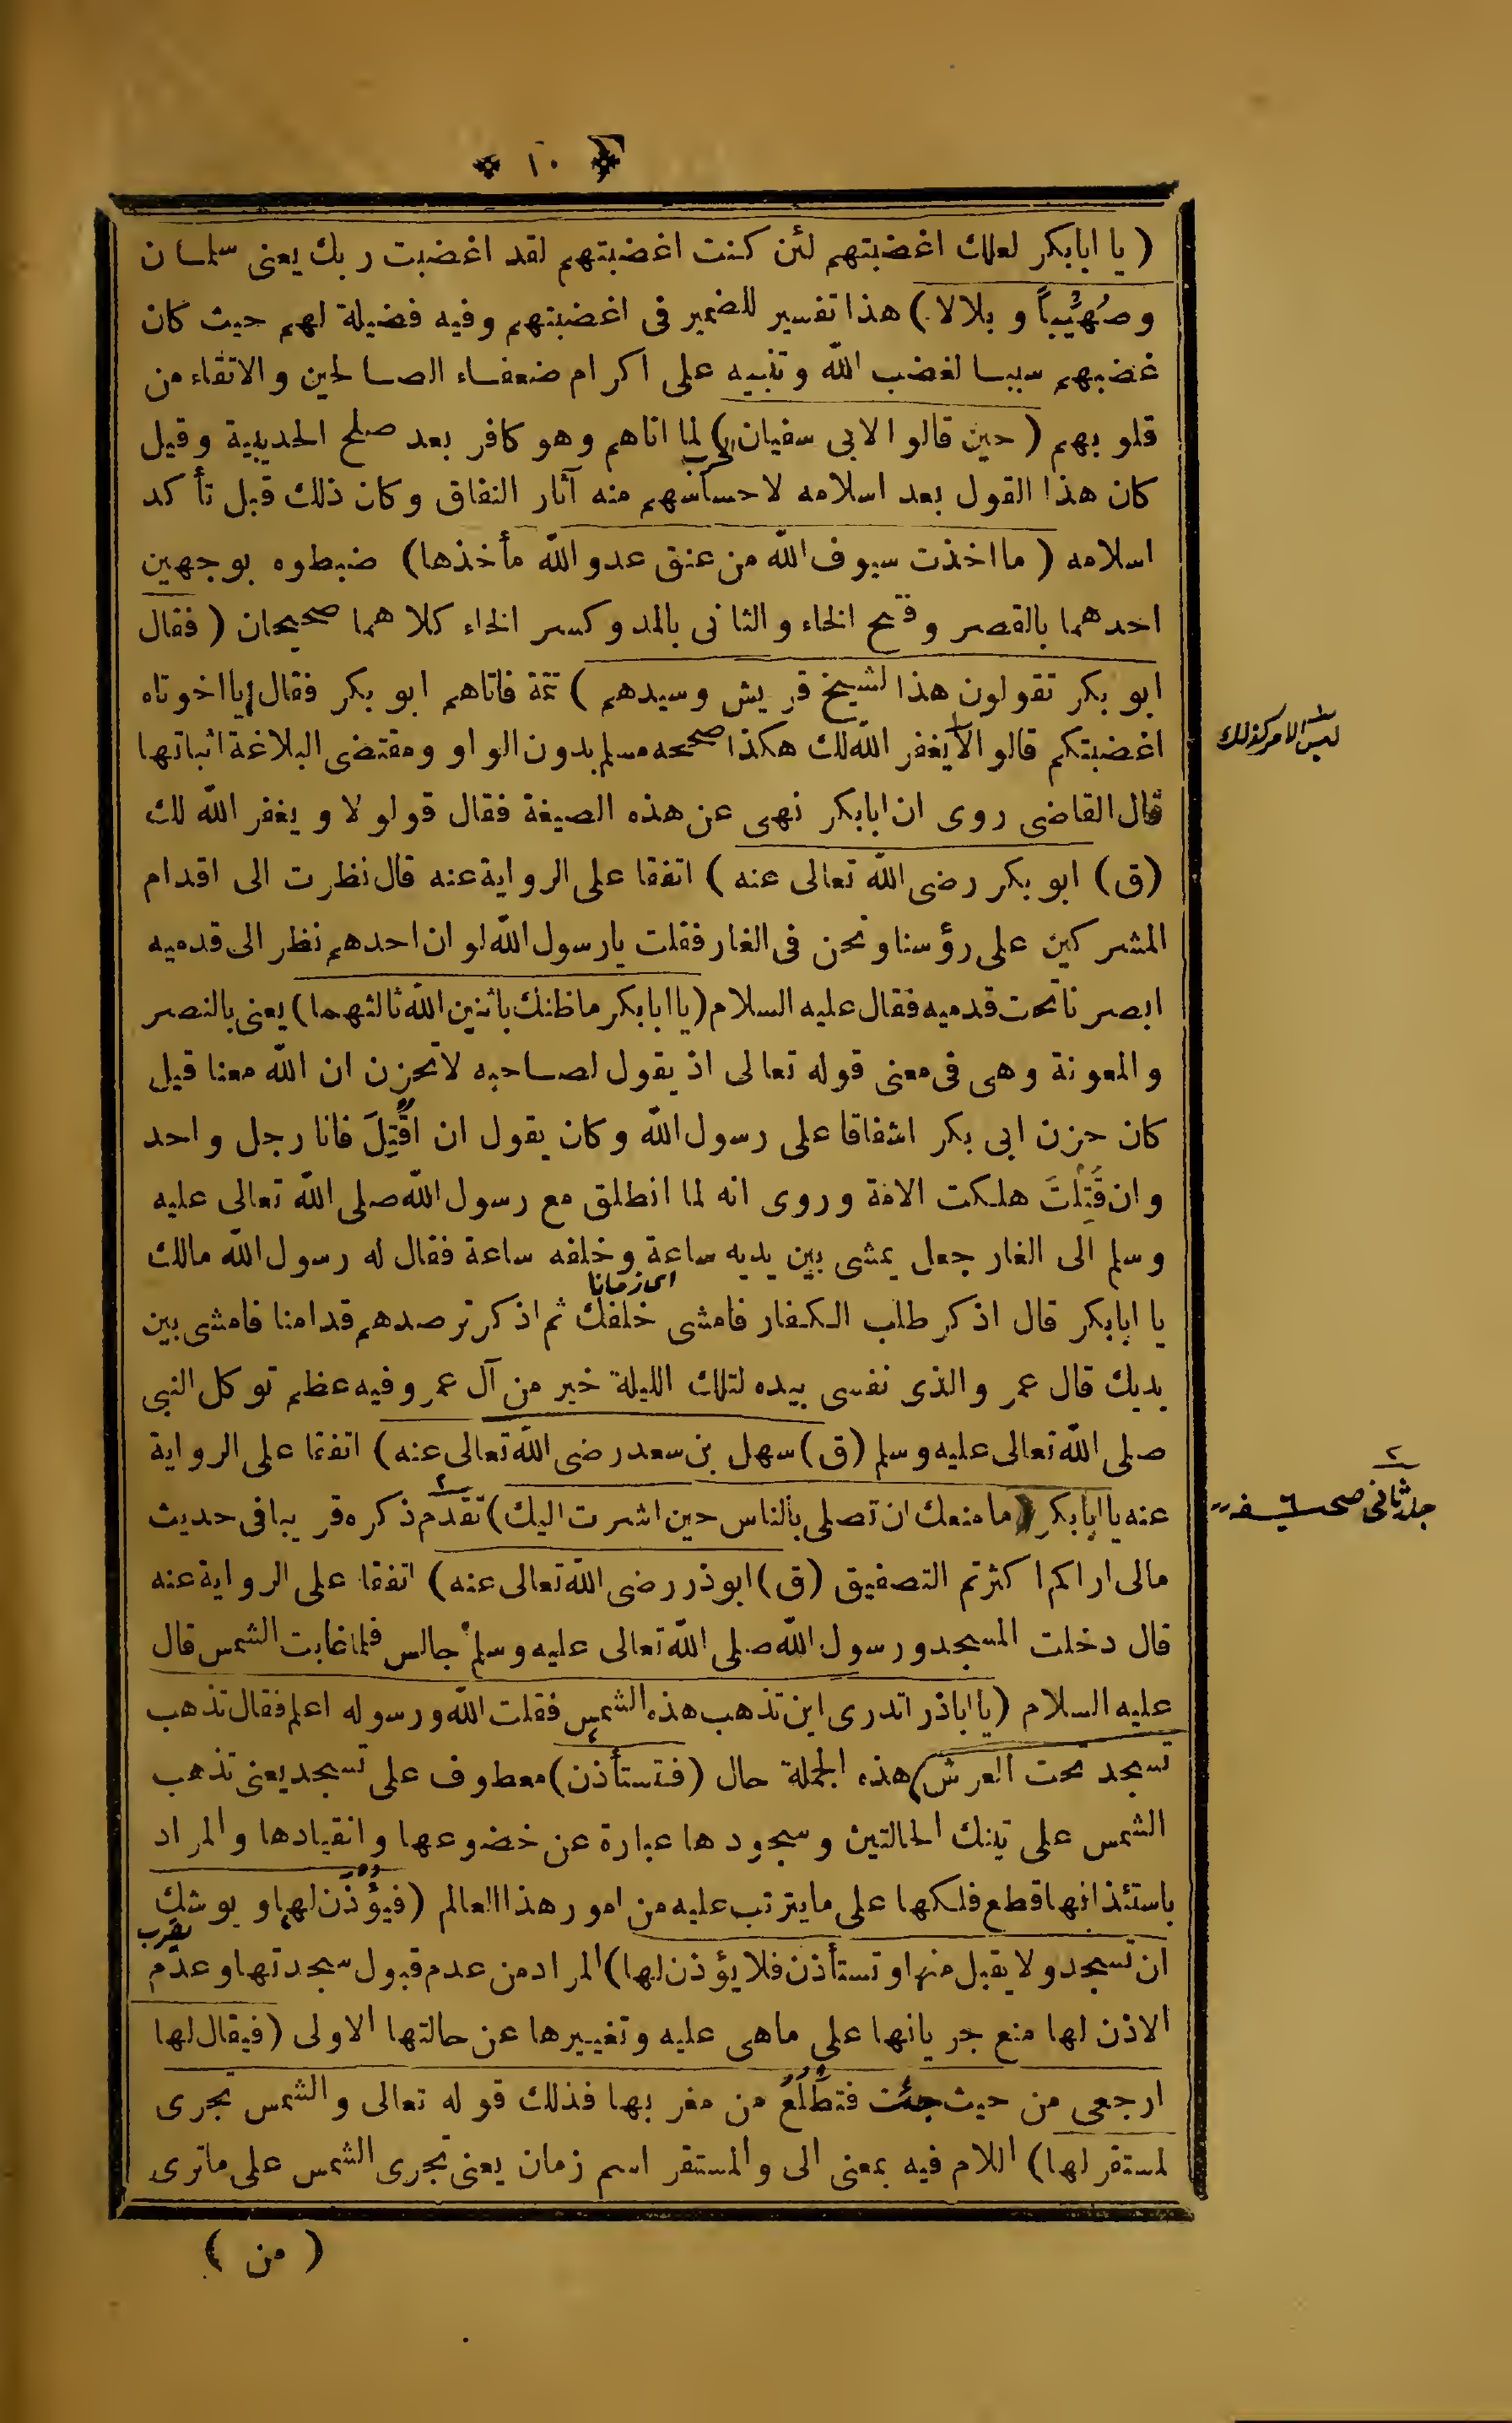 ١٠
( يا ابابكر لعلك اغضبتهم لئن كنت اغضبتهم لقد اغضبت ربك يعنى سلمان
وصُهَيْباً وبلالا ) هذا تفسير للضمير فى اغضبتهم وفيه فضيلة لهم حيث كان
غضبهم سببا لغضب الله وتنبيه على اكرام ضعفاء الصالحين والاتقاء من
قلوبهم ( حين قالوا لابى سفيان ) لما اتاهم وهو كافر بعد صلح الحديبية وقيل
كان هذا القول بعد اسلامه لاحساسهم منه آثار النفاق وكان ذلك قبل تأكد
اسلامه ( مااخذت سيوف الله من عنق عدو الله مأخذها ) ضبطوه بوجهين
احدهما بالقصر وفتح الخاء والثانى بالمد وكسر الخاء كلاهما صحيحان ( فقال
ابو بكر تقولون هذا لشيخ قريش وسيدهم ) تتمة فاتاهم ابو بكر فقال يااخوتاه
اغضبتكم قالوا لا يغفر الله لك هكذا صححه مسلم بدون الواو ومقتضى البلاغة اثباتها
ليس الامر كذلك
قال القاضى روى ان ابابكر نهى عن هذه الصيغة فقال قولوا لا ويغفر الله لك
(ق) ابو بكر رضى الله تعالى عنه ) اتفقا على الرواية عنه قال نظرت الى اقدام
المشركين على رؤسنا ونحن فى الغار فقلت يارسول الله لو ان احدهم نظر الى قدميه
ابصرنا تحت قدميه فقال عليه السلام ( يا ابابكر ماظنك باثنين الله ثالثهما ) يعنى بالنصر
والمعونة وهى فى معنى قوله تعالى اذ يقول لصاحبه لاتحزن ان الله معنا قيل
كان حزن ابى بكر اشفاقا على رسول الله وكان يقول ان اُقْتَلْ فانا رجل واحد
وان قُتِلْتَ هلكت الامة وروى انه لما انطلق مع رسول الله صلى الله تعالى عليه
وسلم الى الغار جعل يمشى بين يديه ساعة وخلفه ساعة فقال له رسول الله مالك
اى زمانا
يا ابابكر قال اذكر طلب الكفار فامشى خلفك ثم اذكر ترصدهم قدامنا فامشى بين
يديك قال عمر والذى نفسى بيده لتلك الليلة خير من آل عمر وفيه عظم توكل النبى
صلى الله تعالى عليه وسلم (ق) سهل بن سعد رضى الله تعالى عنه ) اتفقا على الرواية
عنه يا ابابكر ( مامنعك ان تصلى بالناس حين اشرت اليك ) تقدم ذكره قريبا فى حديث
٢
جلد ثانى صحيفه ٦
مالى اراكم اكثرتم التصفيق (ق) ابوذر رضى الله تعالى عنه ) اتفقا على الرواية عنه
قال دخلت المسجد ورسول الله صلى الله تعالى عليه وسلم جالس فلما غابت الشمس قال
عليه السلام ( يا اباذر اتدرى اين تذهب هذه الشمس فقلت الله ورسوله اعلم فقال تذهب
تسجد تحت العرش ) هذه الجملة حال ( فتستأذن ) معطوف على تسجد يعنى تذهب
الشمس على تينك الحالتين وسجودها عبارة عن خضوعها وانقيادها والمراد
باستئذانها قطع فلكها على مايترتب عليه من امور هذا العالم ( فيؤذن لها ويوشك
يقرب
ان تسجد ولا يقبل منها وتستأذن فلا يؤذن لها ) المراد من عدم قبول سجدتها وعدم
الاذن لها منع جريانها على ماهى عليه وتغييرها عن حالتها الاولى ( فيقال لها
ارجعى من حيث جئت فتطلع من مغربها فذلك قوله تعالى والشمس تجرى
لمستقر لها ) اللام فيه بمعنى الى والمستقر اسم زمان يعنى تجرى الشمس على ماترى
( من )